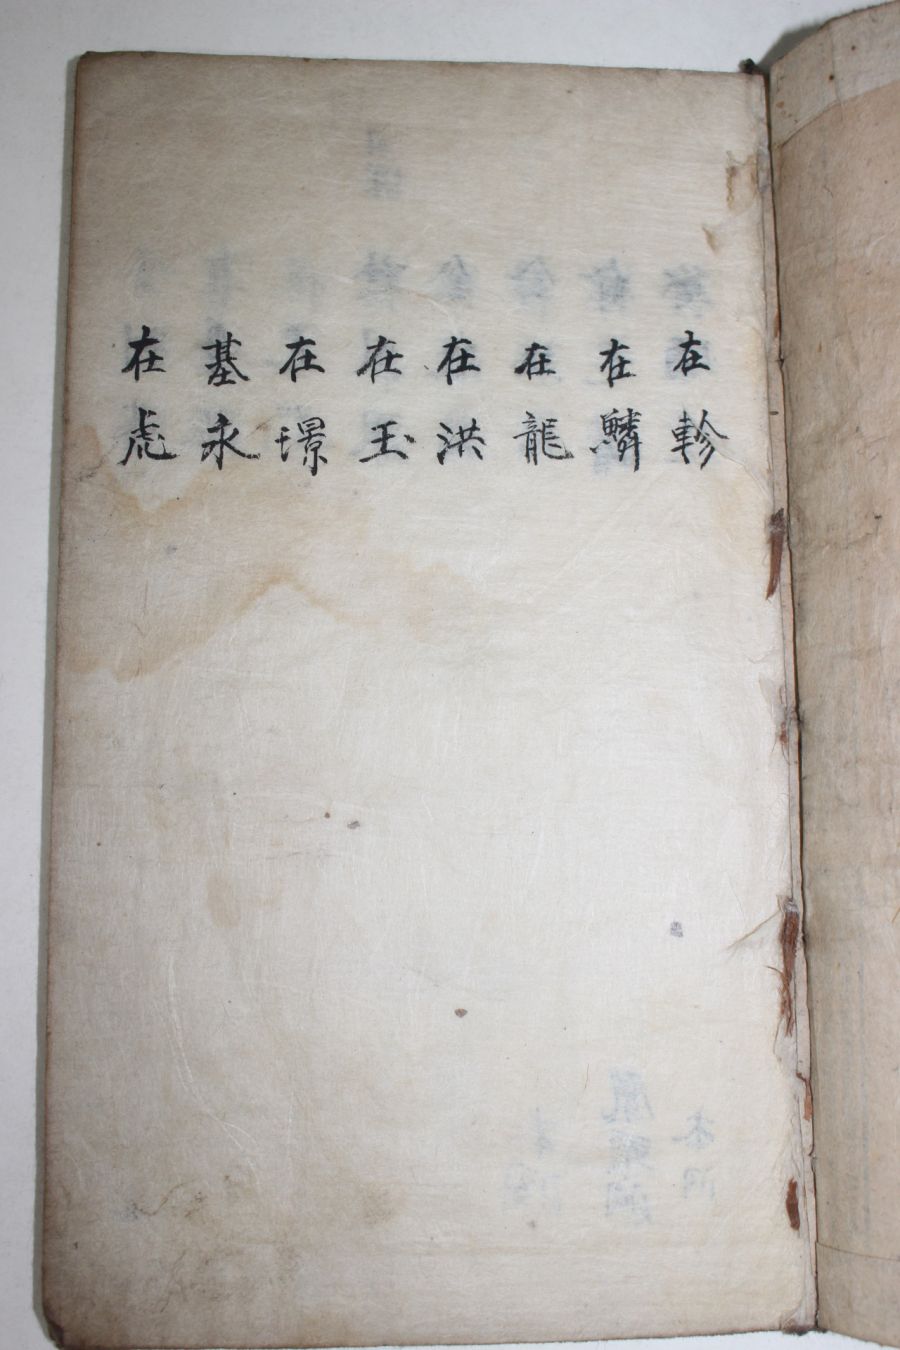 在軫
在鱗
在龍
在洪
在玉
在璟
基永
在虎